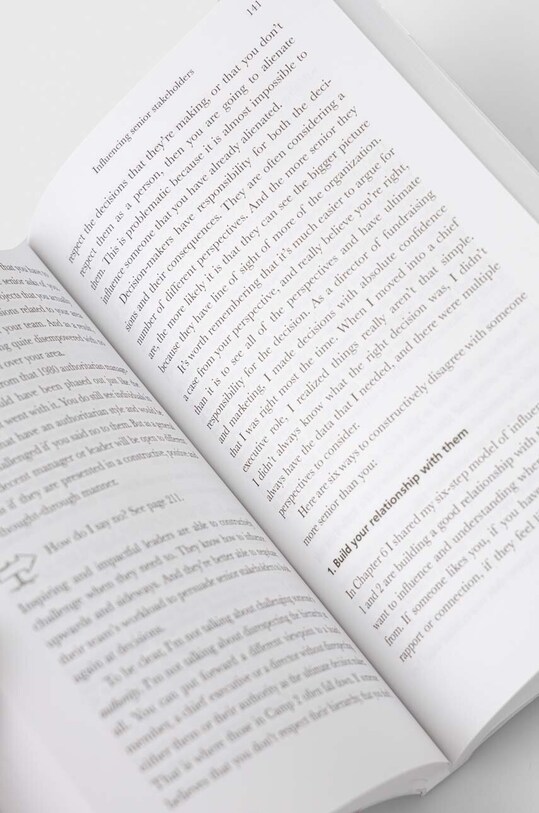 than you have
senior asks of you
objects that you usually
sions related to your area
your team. And as a result
quite disempowered
over your area.
from that 1980 authoritarian manager
could have been phased out just like the
went with it. You do still see individuals
hat have an authoritarian style and would
hallenged if you said no to them. But in a general
decent manager or leader will be open to different
s if they are presented in a constructive, positive and
thought-through manner.
How do I say no? See page 211.
Inspiring and impactful leaders are able to constructively
challenge when they need to. They know how to influence
upwards and sideways. And they're better able to
their team's workload to persuade senior stakeholders to
again at decisions.
To be clear, I'm not talking about challenging someone's
authority. I'm not talking about disrespecting the hierarchy at
all. You can put forward a different viewpoint to a
member, a chief executive or a director without disrespecting
either them or their authority as the ultimate decision-maker.
That is where those in Camp 2 often fall down.
believes that you don't respect their hierarchy,
Influencing senior stakeholders
141
respect the decisions that they're making, or that you don't
respect them as a person, then you are going to alienate
them. This is problematic because it is almost impossible to
influence someone that you have already alienated.
Decision-makers have responsibility for both the deci-
sions and their consequences. They are often considering a
number of different perspectives. And the more senior they
are, the more likely it is that they can see the bigger picture
because they have line of sight of more of the organization.
It's worth remembering that it's much easier to argue for
a case from your perspective, and really believe you're right,
than it is to see all of the perspectives and have ultimate
responsibility for the decision. As a director of fundraising
and marketing, I made decisions with absolute confidence
that I was right most of the time. When I moved into a chief
executive role, I realized things really aren't that simple.
I didn't always know what the right decision was, I didn't
always have the data that I needed, and there were multiple
perspectives to consider.
Here are six ways to constructively disagree with someone
more senior than you:
1. Build your relationship with them
In Chapter 6 I shared my six-step model of influen
1 and 2 are building a good relationship with
want to influence and understanding where
from. If someone likes you, if you have
rapport or connection, if they feel